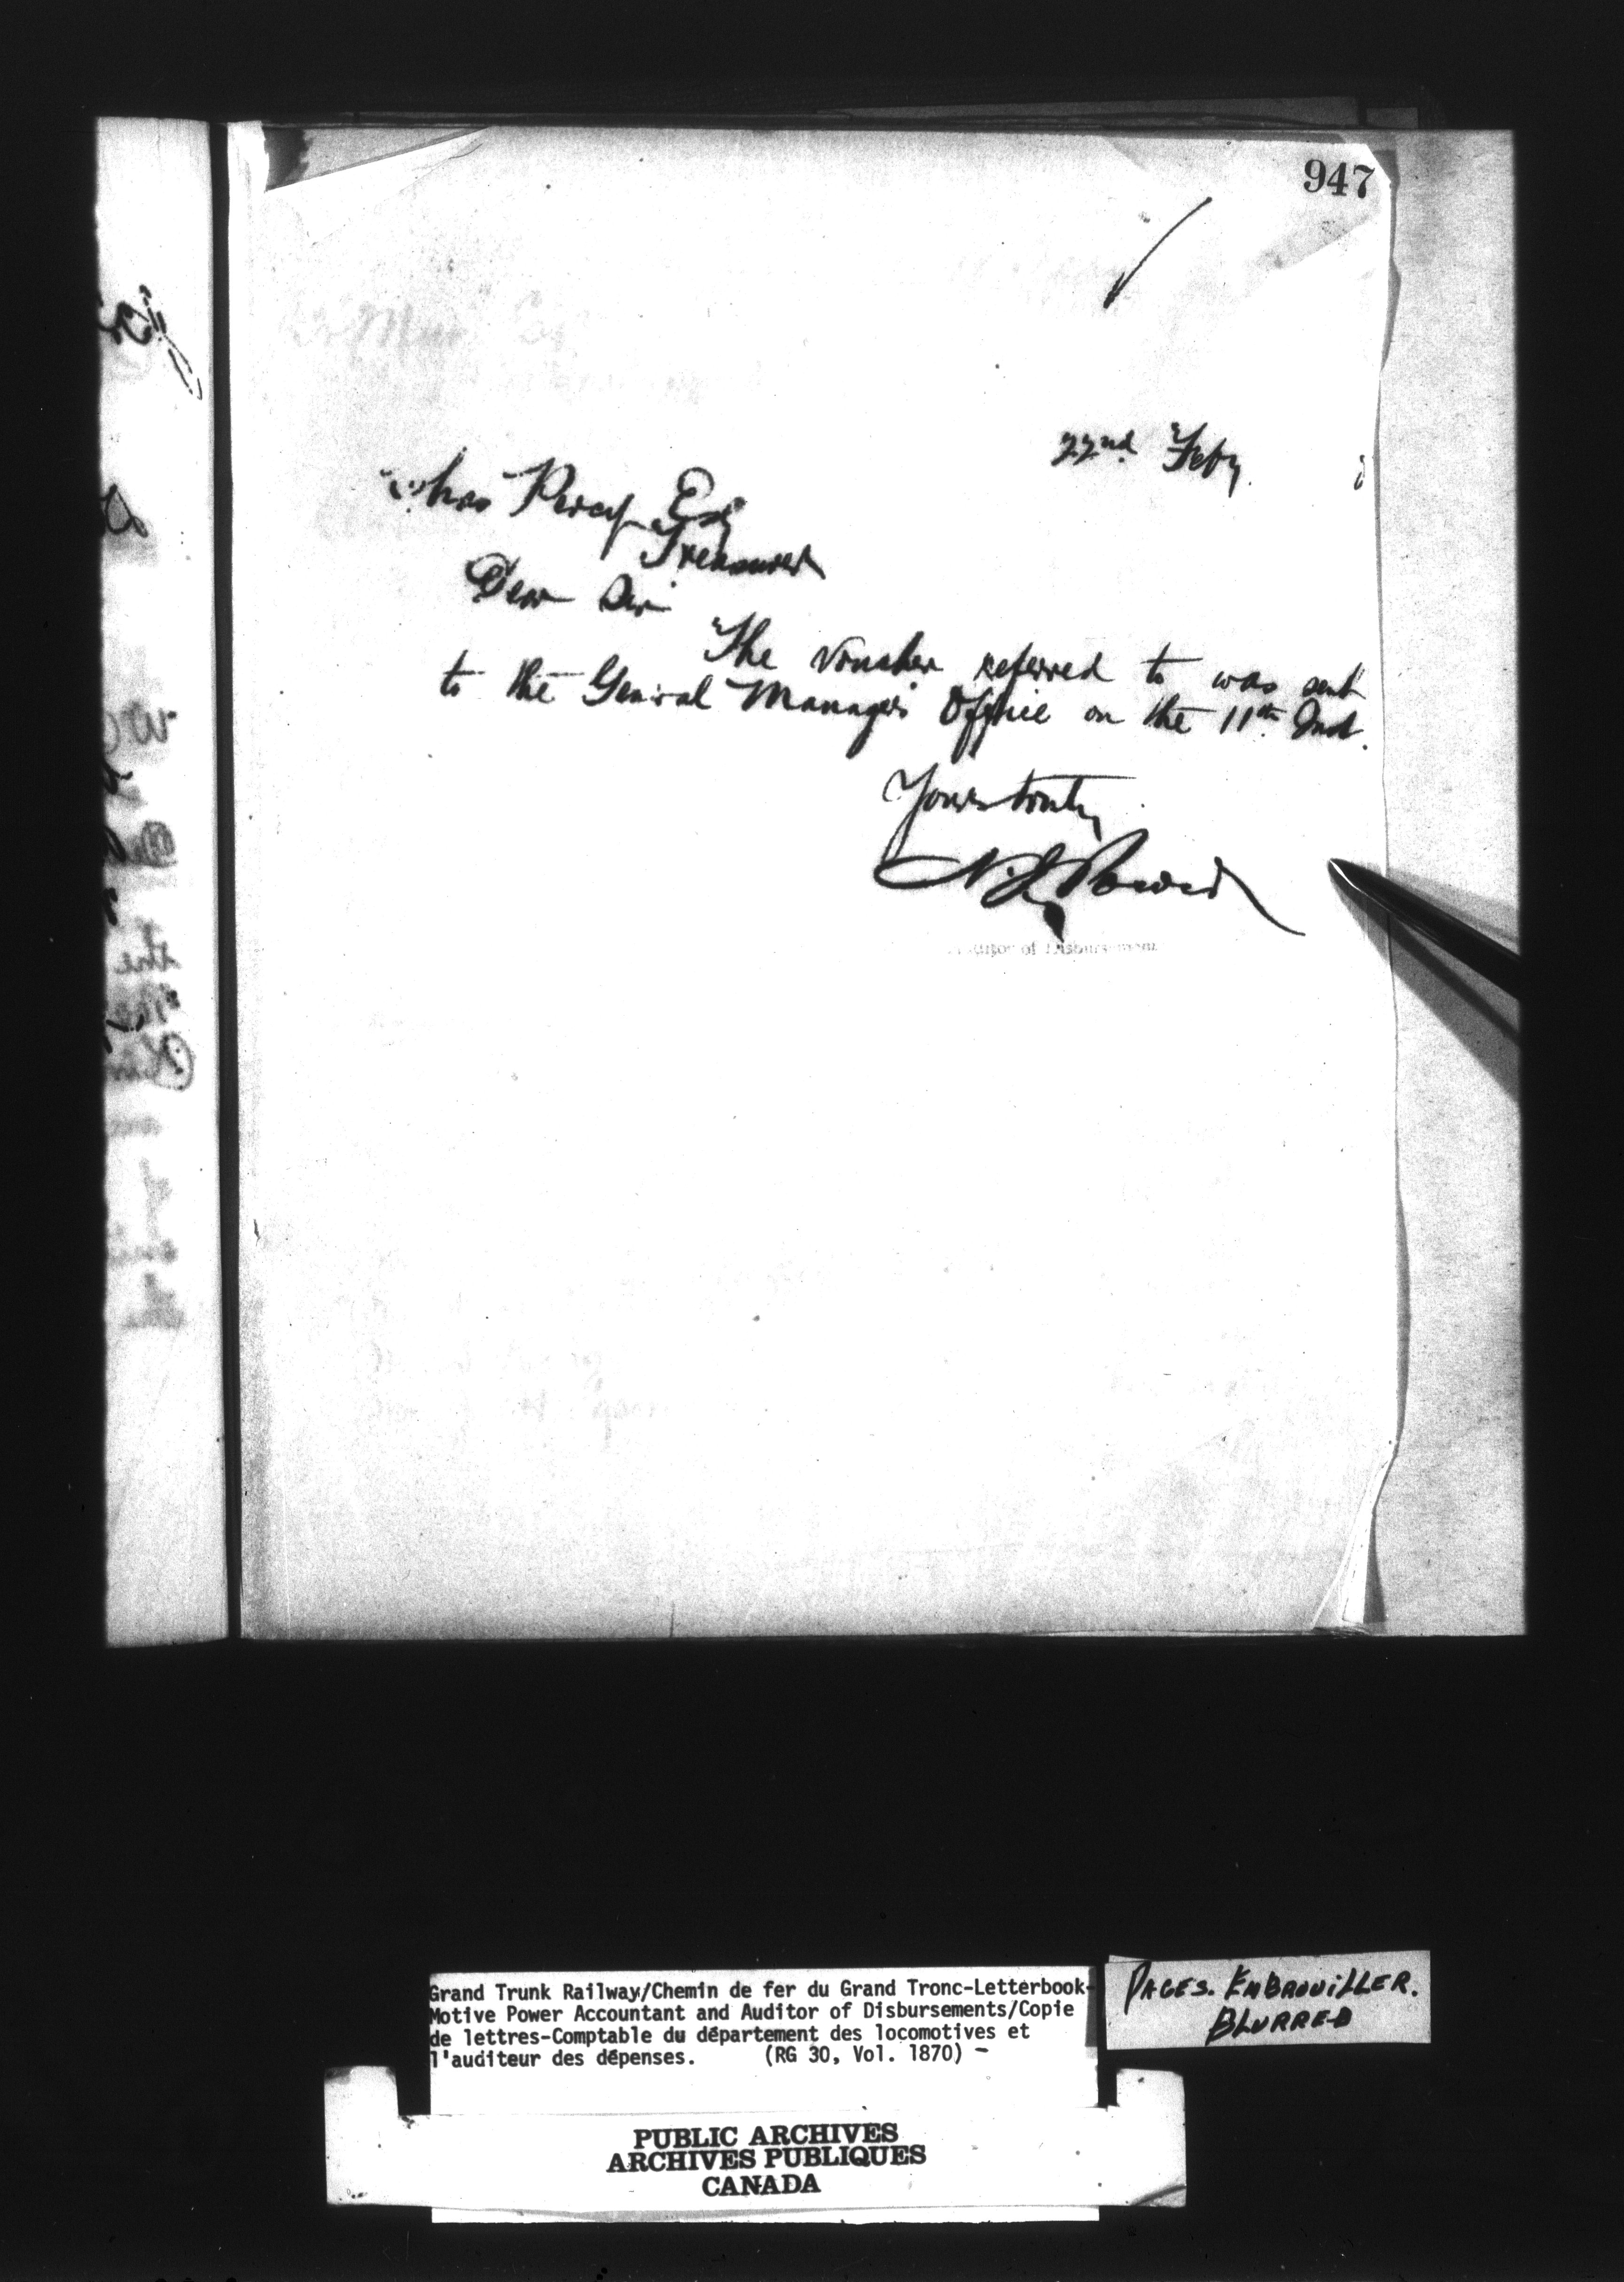 947
22nd Feby. 8
Chas Percy Esq
Treasurer
Dear Sir
The Voucher referred to was sent
to the General Manager's Office on the 11th Inst.
Yours truly
N. J. Power
Auditor of Disbursements
Grand Trunk Railway/Chemin de fer du Grand Tronc-Letterbook-
Motive Power Accountant and Auditor of Disbursements/Copie
de lettres-Comptable du département des locomotives et
l'auditeur des dépenses. (RG 30, Vol. 1870) -
PAGES. EMBROUILLER.
BLURRED
PUBLIC ARCHIVES
ARCHIVES PUBLIQUES
CANADA